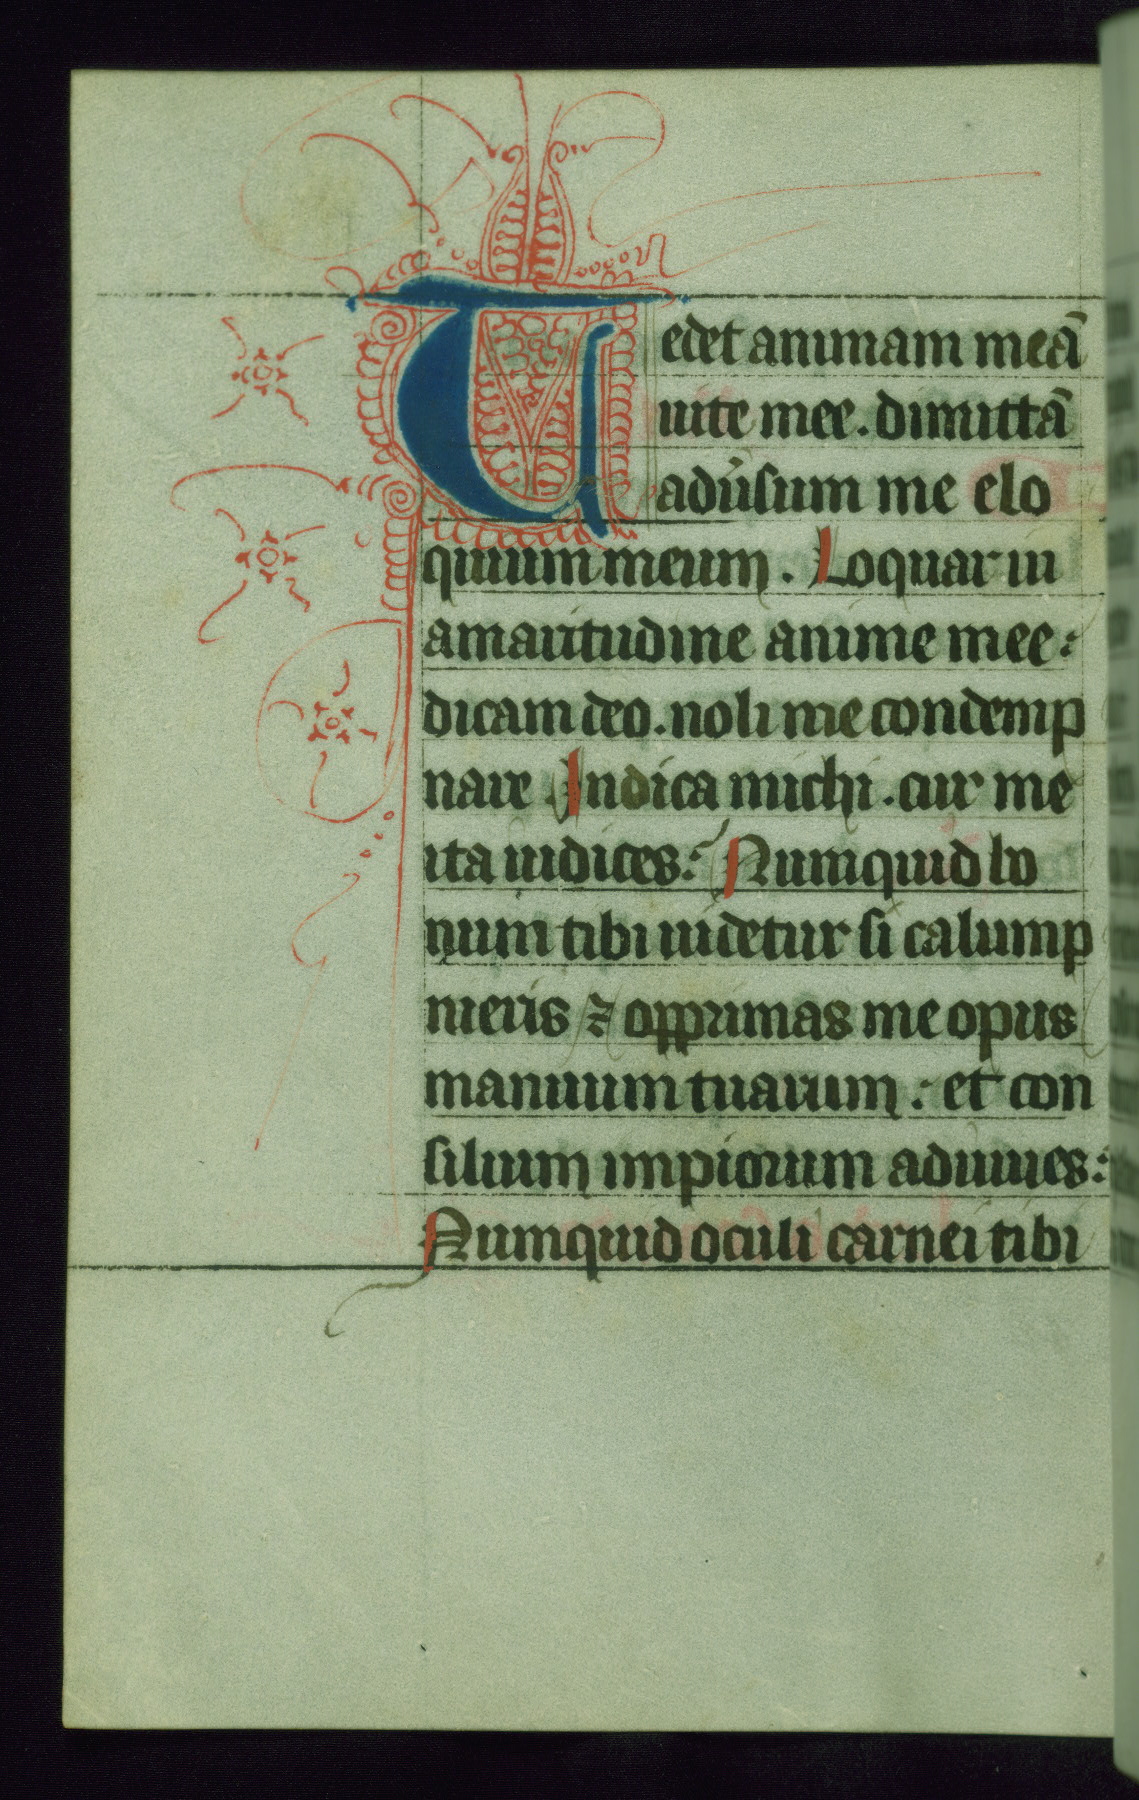 Tedet animam meā
uite mee. dimittā
adūsum me elo
quium meum. Loquar in
amaritudine anime mee:
dicam deo. noli me condemp
nare. Indica michi. cur me
ita iudices: Numquid bo
num tibi uidetur si calump
nieris ⁊ opprimas me opus
manuum tuarum: et con
silium impiorum adiuues:
Numquid oculi carnei tibi